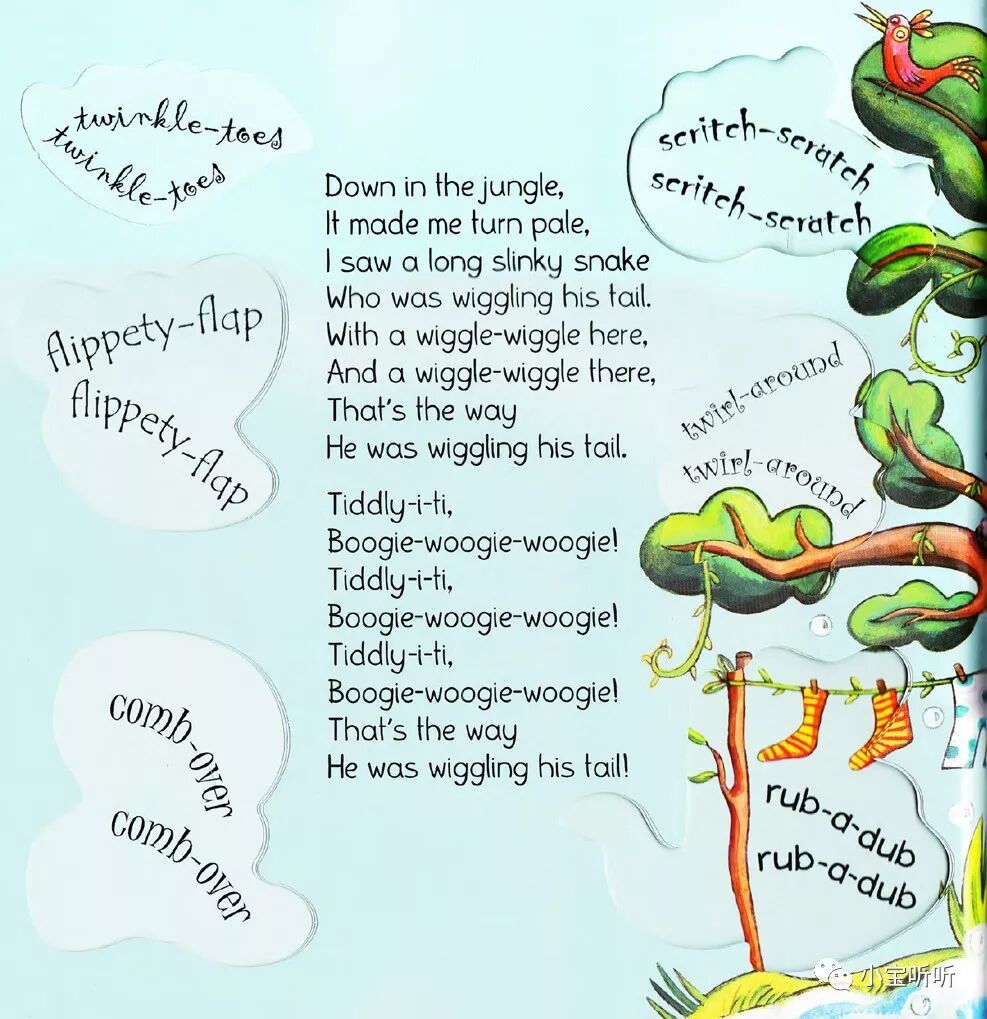 twinkle-toes
twinkle-toes
flippety-flap
flippety-flap
comb-over
comb-over
Down in the jungle,
It made me turn pale,
I saw a long slinky snake
Who was wiggling his tail.
With a wiggle-wiggle here,
And a wiggle-wiggle there,
That's the way
He was wiggling his tail.
Tiddly-i-ti,
Boogie-woogie-woogie!
Tiddly-i-ti,
Boogie-woogie-woogie!
Tiddly-i-ti,
Boogie-woogie-woogie!
That's the way
He was wiggling his tail!
scritch-scratch
scritch-scratch
twirl-around
twirl-around
rub-a-dub
rub-a-dub
小宝听听